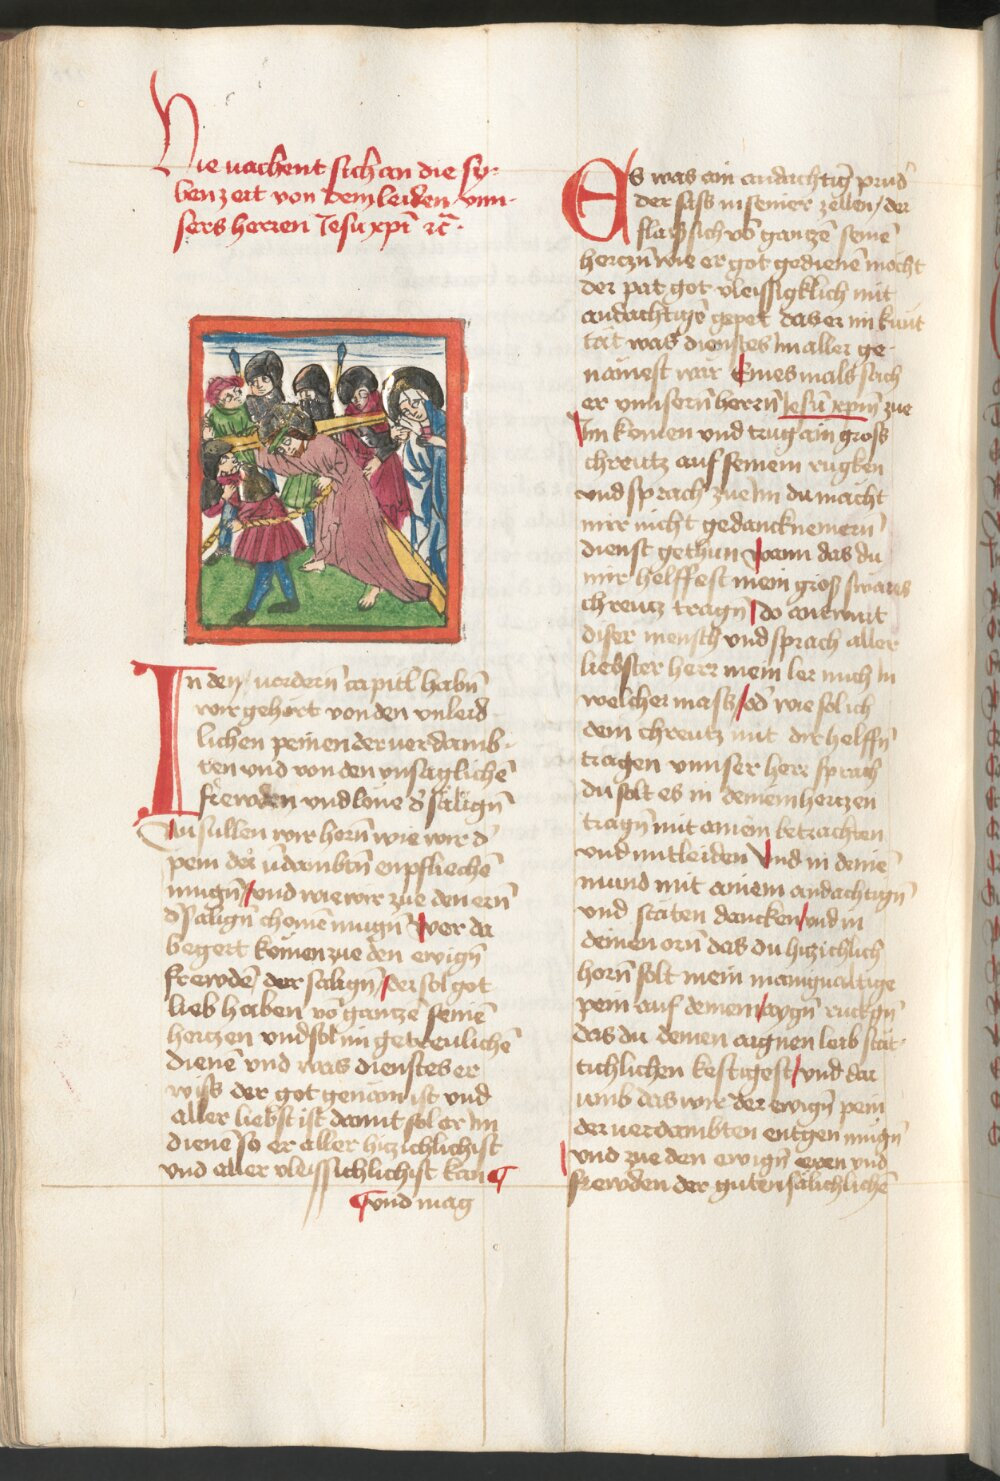 Hie vachent sich an die sy-
ben zeit von dem leiden vnn-
sers herren Jesu xpi ꝛc̃ .
In den vordern̄ capitl habn̄
wir gehört von den vnleid
lichen peinen der verdamb-
ten vnd von den vnsaglichē
frewden vnd lone d̉ sälign̄
Nu sullen wir horn̄ wie wir d̉
pein der v̄dambtn̄ enpfliechē
mugn̄ / vnd wie wir zue den ern̄
d̉ sälign̄ chomē mugn̄ Wer da
begert komen zue den ewign̄
frewdē der sälign̄ / der sol got
lieb haben vō gantzē seinē
hertzen vnd sol im getreulichē
dienē vnd was dienstes er
wiss der got genäm ist vnd
aller liebst ist damit sol er im
dienē so er aller hiczichlichist
vnd aller vleissichlichist kan ¶
¶ vnd mag
Es was ain andächtiḡ prud̉
der sass in seiner zellen / der
flaiss sich vō gantzē seinē
hertzn̄ wie er got gedienē möcht
der pat got vleissigklich mit
andächtigē gepet das er im kunt
tät was dienstes im aller ge-
nämest wär Eines mals sach
er vnnsern̄ herrn̄ Jesū xpm̄ zue
Im komen vnd trug ain gross
chreutz auf seinem rugken
vnd sprach zue im du macht
mir nicht gedancknemern̄
dienst gethun wann das du
mir helffest mein gross swäres
chreutz tragn̄ / do antwurt
diser mensch vnd sprach aller
liebster herr mein ler mich in
welcher mass / od̉ wie sol ich
dem chreutz mit dir helffn̄
tragen vnnser herr sprach
du solt es in deinem hertzen
tragn̄ mit ainem betrachten
vnd mitleiden Vnd in deinē
mund mit ainem andächtign̄
vnd stäten dancken / vnd in
deinen orn̄ das du hiczichlich
horn̄ solt mein manigualtige
pein auf deinem aygn̄ ruckgn̄
das du deinen aignen leib stät-
tichlichen kestigest / vnd dar
umb das wir der ewign̄ pein
der verdambten entgen mugn̄
vnd zue den ewign̄ eren vnd
frewden der guten sälichlichē